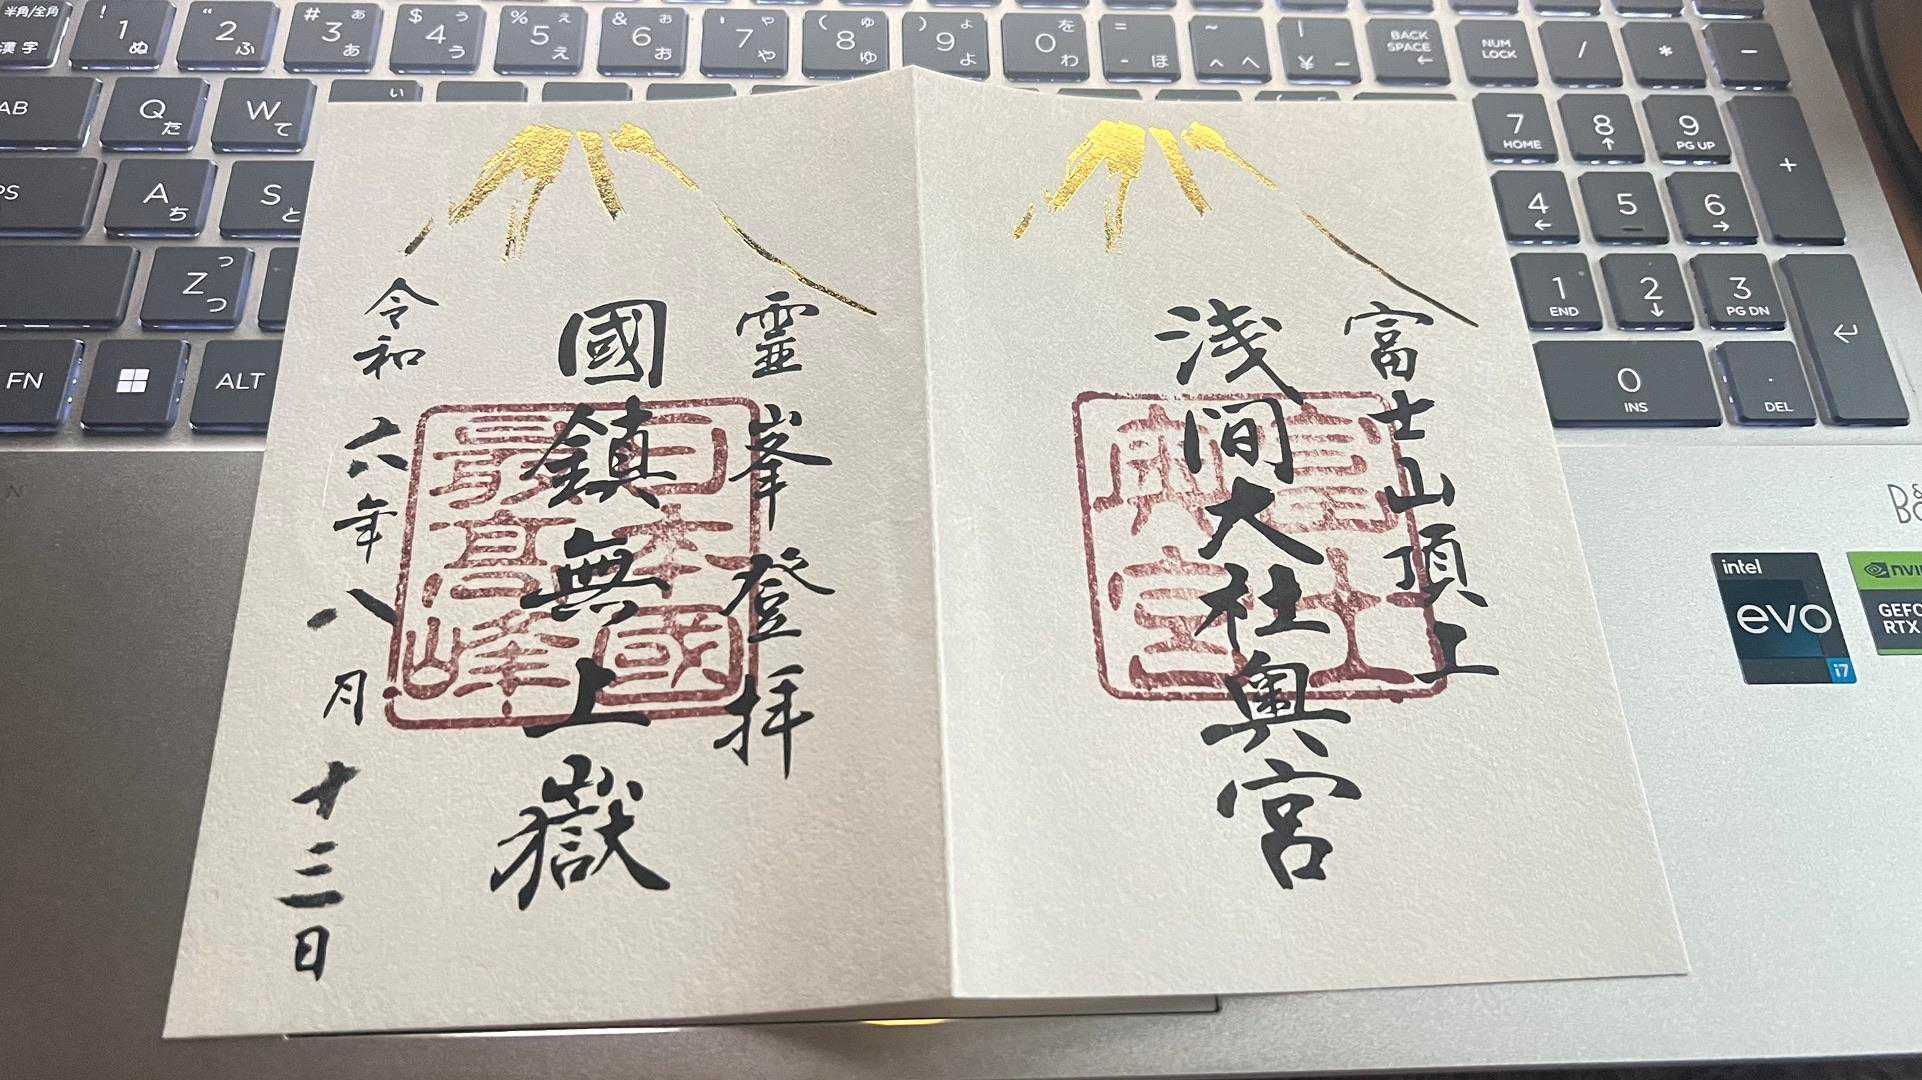 富士山頂上
浅間大社奥宮
富士
奥宮
霊峯登拝
國鎮無上嶽
日本國
最高峰
令和六年八月十三日
半角/全角
漢字
! 1 ぬ
" 2 ふ
# ぁ 3 あ
$ ぅ 4 う
% ぇ 5 え
& ぉ 6 お
' ゃ 7 や
( ゅ 8 ゆ
) ょ 9 よ
を 0 わ
= - ほ
~ ^ へ
| ¥ ー
BACK SPACE ←
NUM LOCK
/
*
-
AB
Q た
W て
い
7 HOME
8 ↑
9 PG UP
+
PS
A ち
S と
4 ←
5
6 →
Z っ つ
1 END
2 ↓
3 PG DN
FN
ALT
0 INS
. DEL
B&
intel
evo
i7
GEFO
RTX